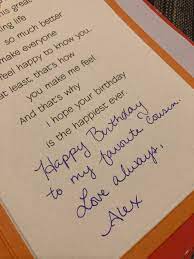 this great
ing life
so much better
make everyone
feel happy to know you...
at least that's how
you make me feel
And that's why
i hope your birthday
is the happiest ever
Happy Birthday
to my favorite Cousin.
Love always,
Alex